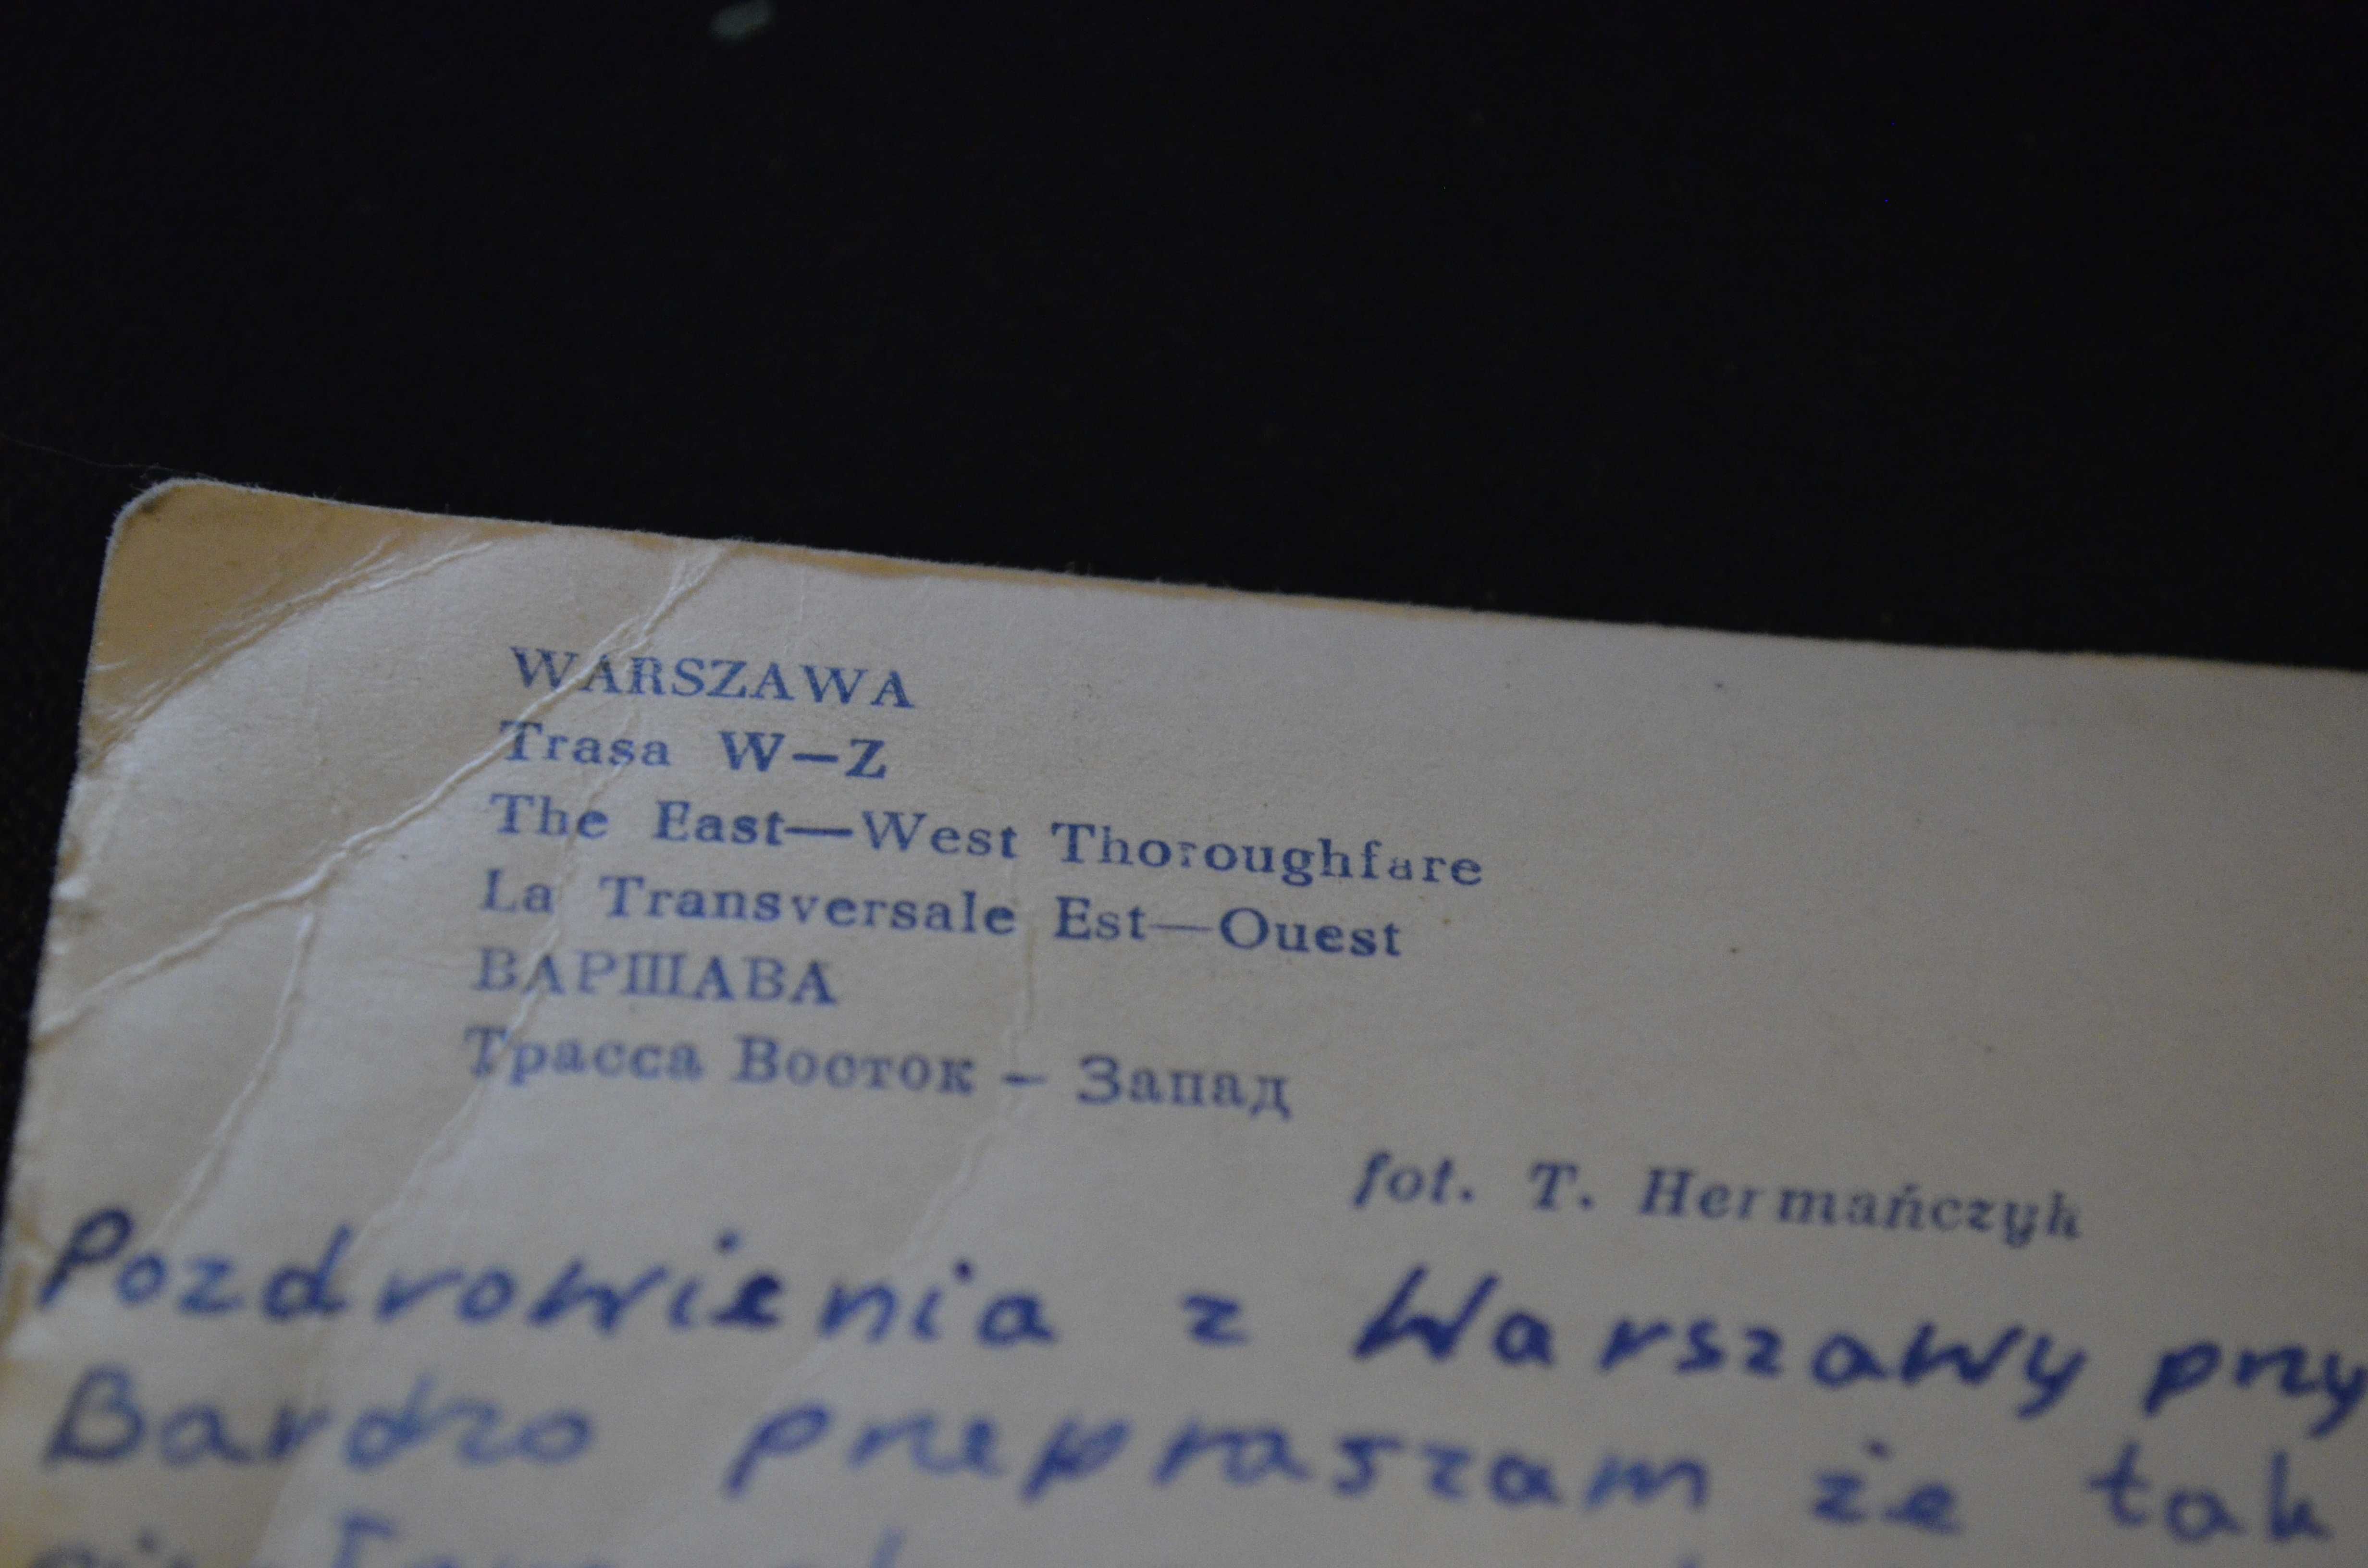 WARSZAWA
Trasa W—Z
The East—West Thoroughfare
La Transversale Est—Ouest
ВАРШАВА
Трасса Восток – Запад
fot. T. Hermańczyk
Pozdrowienia z Warszawy przy
Bardzo przepraszam że tak